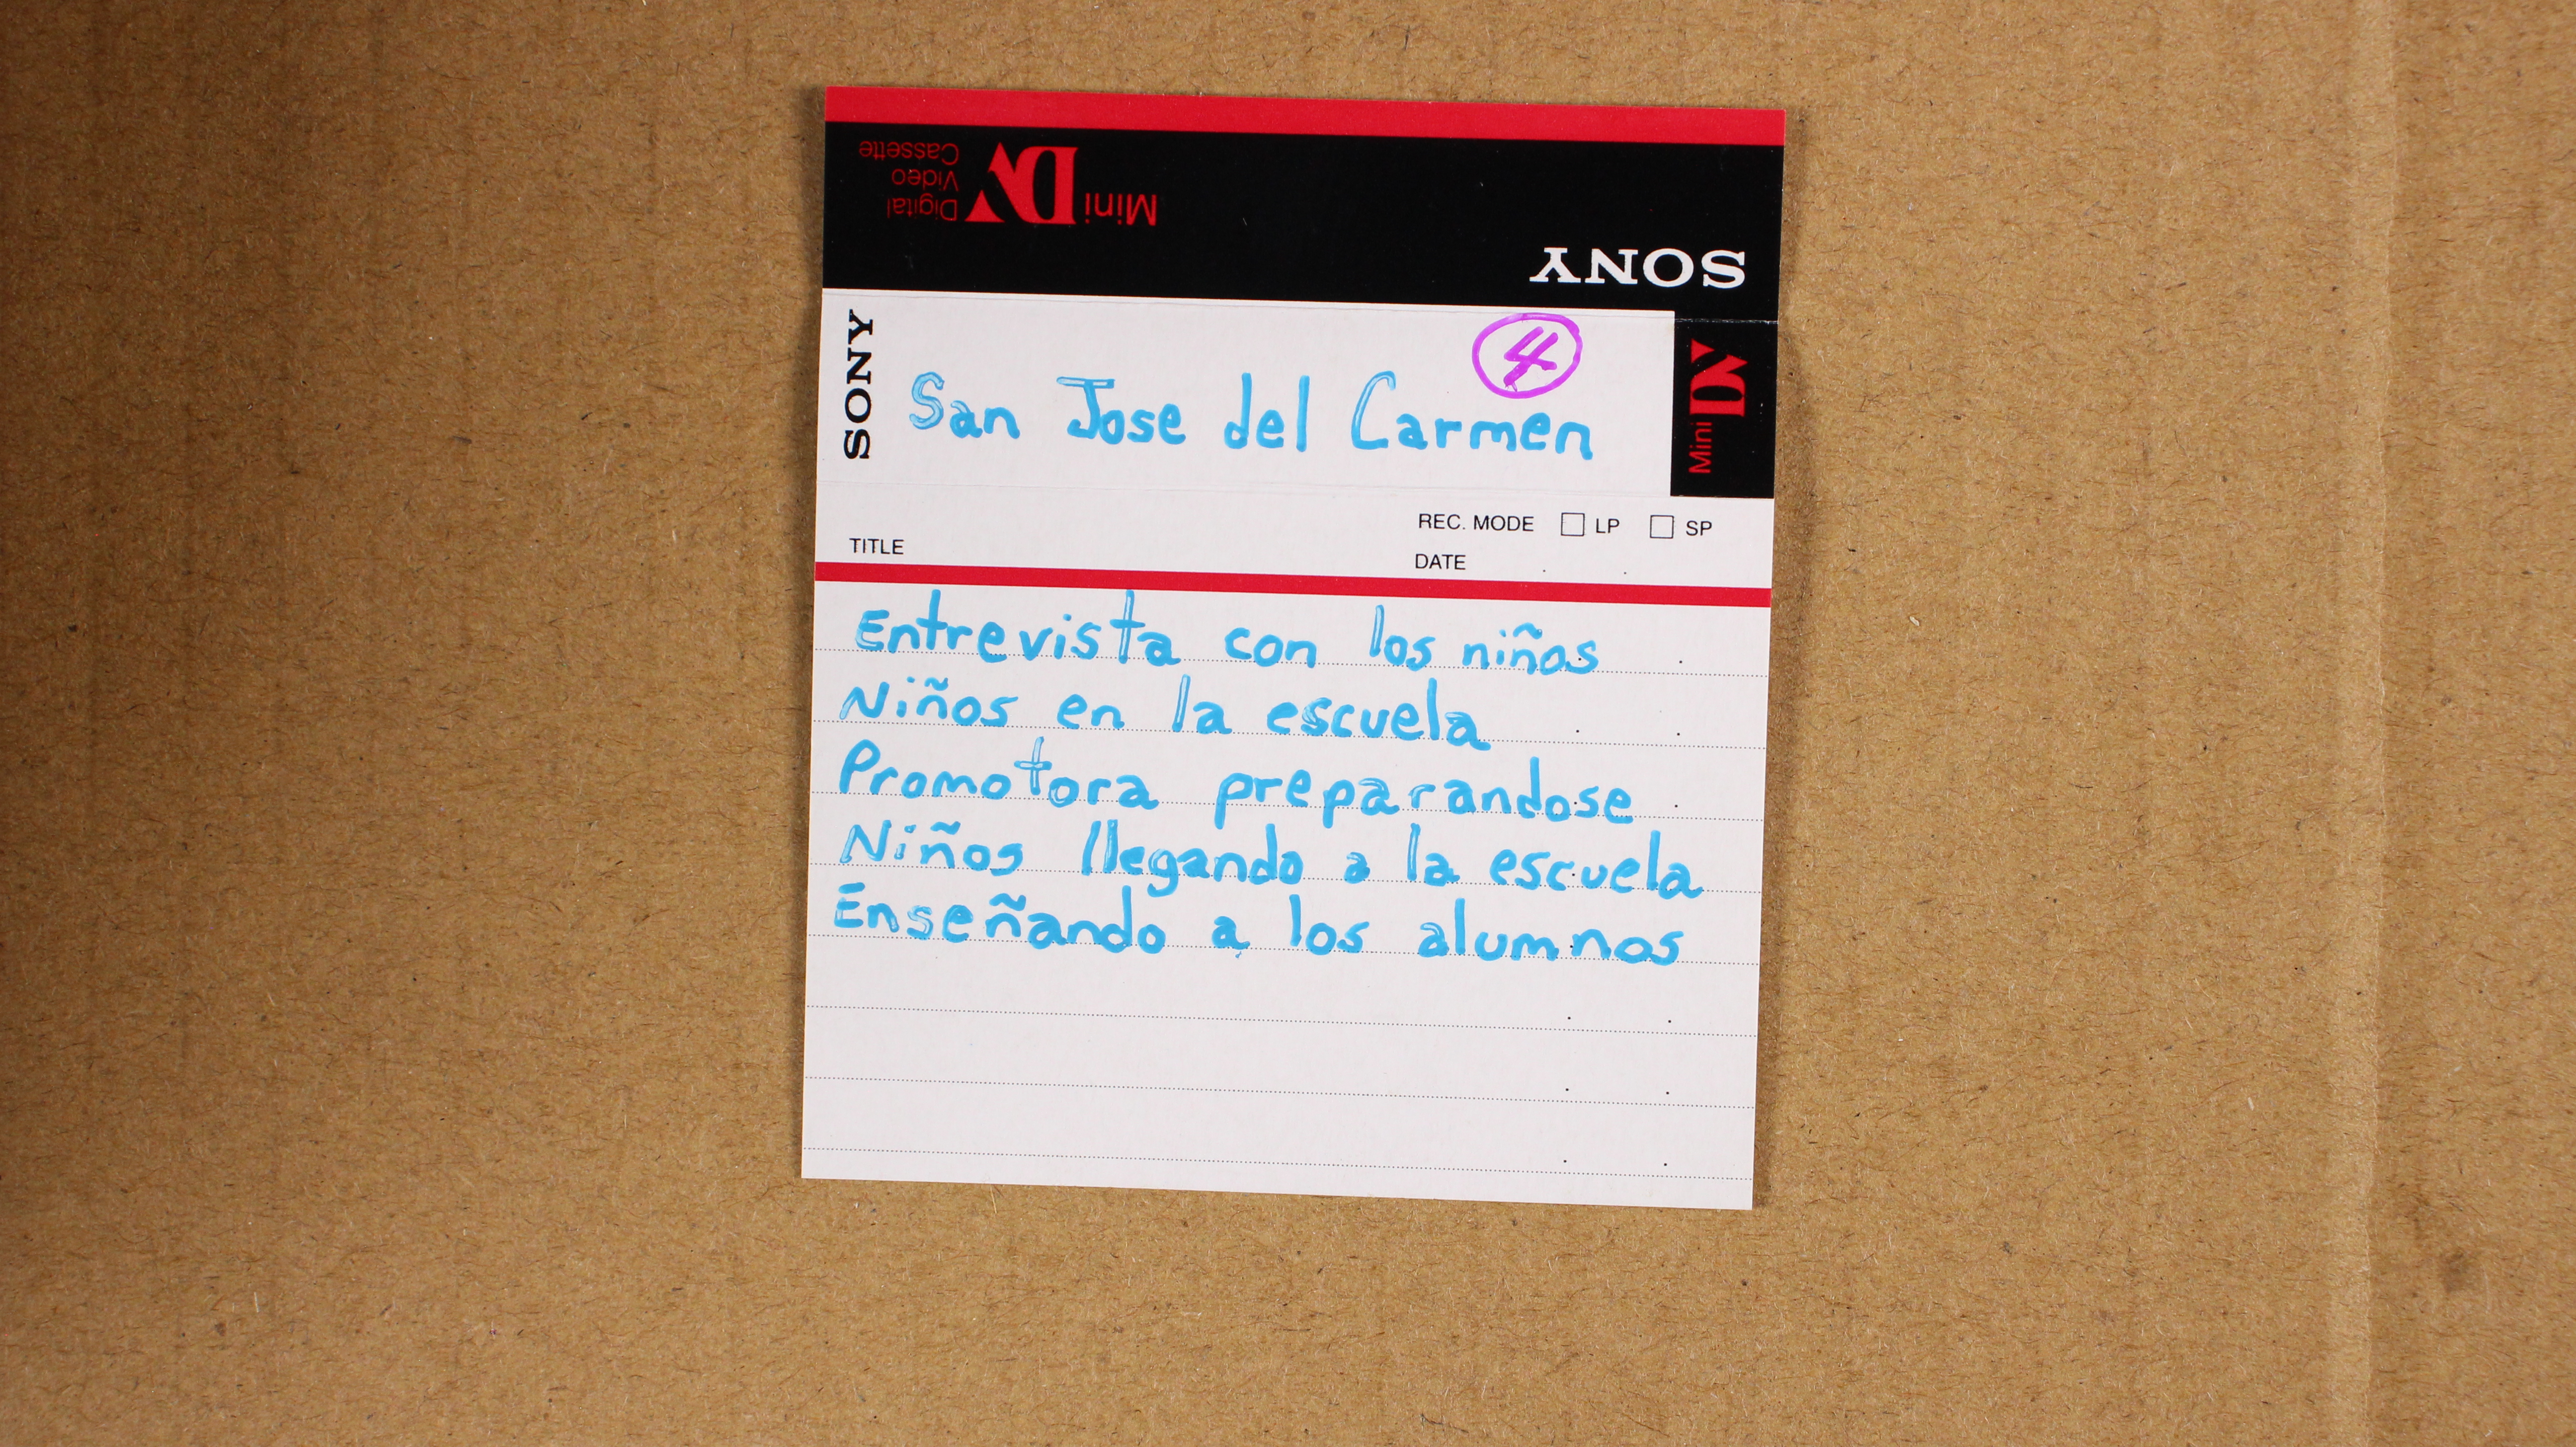 Mini DV Digital
Video
Cassette
SONY
SONY
4
San Jose del Carmen
Mini DV
REC. MODE LP SP
TITLE
DATE
Entrevista con los niños
Niños en la escuela
Promotora preparandose
Niños llegando a la escuela
Enseñando a los alumnos